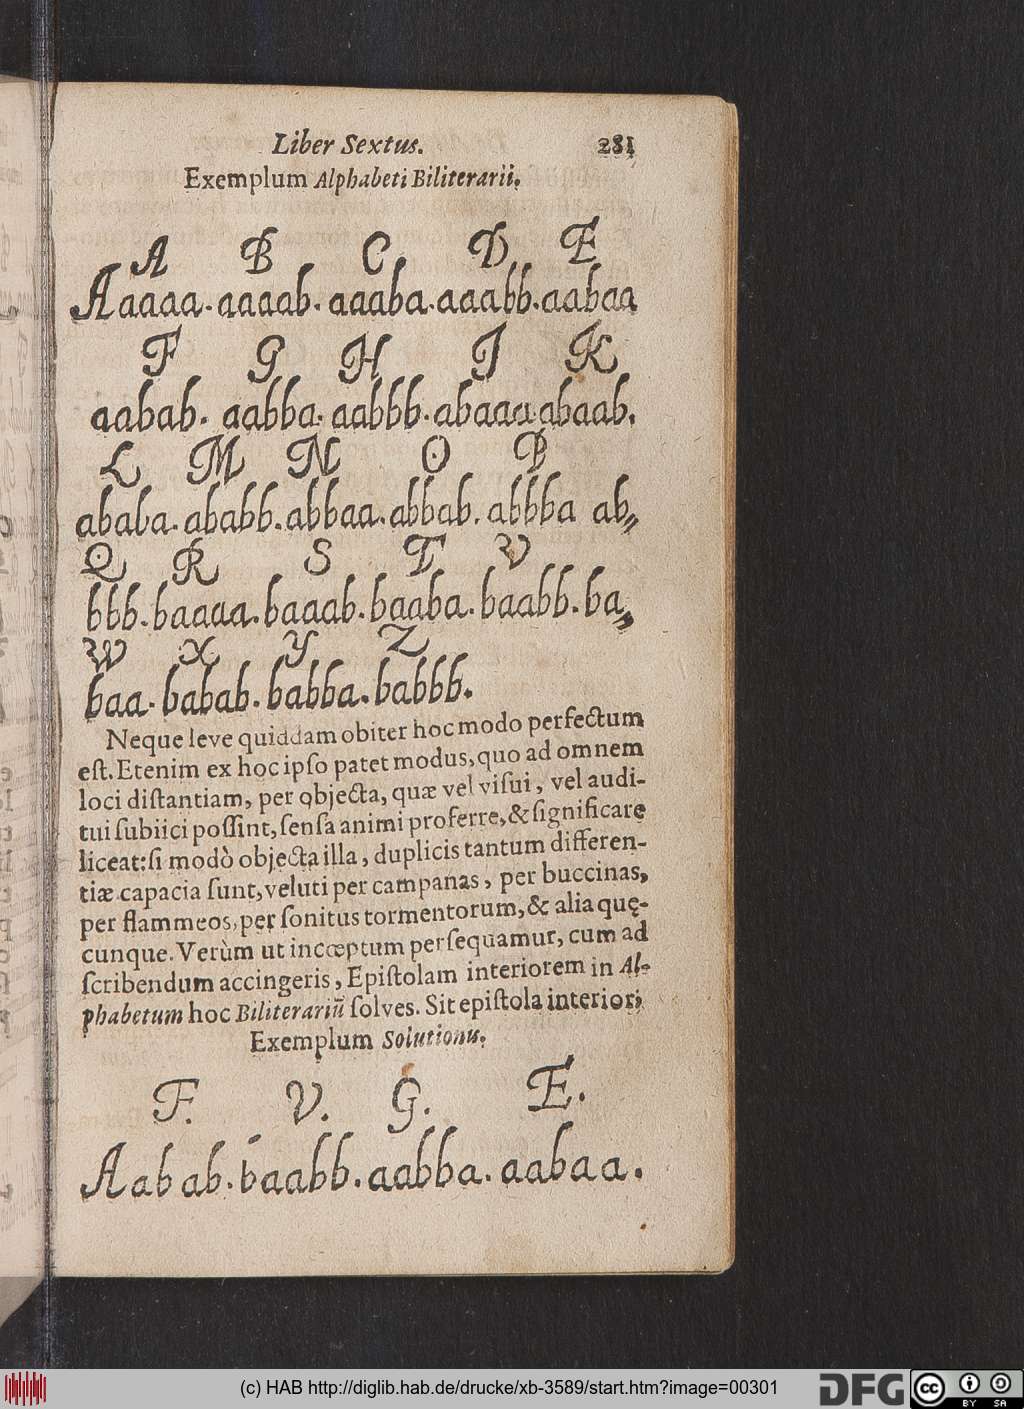 Liber Sextus. 281
Exemplum Alphabeti Biliterarii.
A B C D E
Aaaaa. aaaab. aaaba. aaabb. aabaa
F G H I K
aabab. aabba. aabbb. abaaa abaab.
L M N O P
ababa. ababb. abbaa. abbab. abbba ab„
Q R S T V
bbb. baaaa. baaab. baaba. baabb. ba„
W X Y Z
baa. babab. babba. babbb.
Neque leve quiddam obiter hoc modo perfectum
eſt. Etenim ex hoc ipſo patet modus, quo ad omnem
loci diſtantiam, per objecta, quæ vel viſui, vel audi-
tui ſubiici poſſint, ſenſa animi proferre, & ſignificare
liceat: ſi modò objecta illa, duplicis tantum differen-
tiæ capacia ſunt, veluti per campanas, per buccinas,
per flammeos, per ſonitus tormentorum, & alia quę-
cunque. Verùm ut incœptum perſequamur, cum ad
ſcribendum accingeris, Epiſtolam interiorem in Al-
phabetum hoc Biliterariũ ſolves. Sit epiſtola interior;
Exemplum Solutionis.
F. V. G. E.
Aabab. baabb. aabba. aabaa.
(c) HAB http://diglib.hab.de/drucke/xb-3589/start.htm?image=00301
DFG
cc BY SA